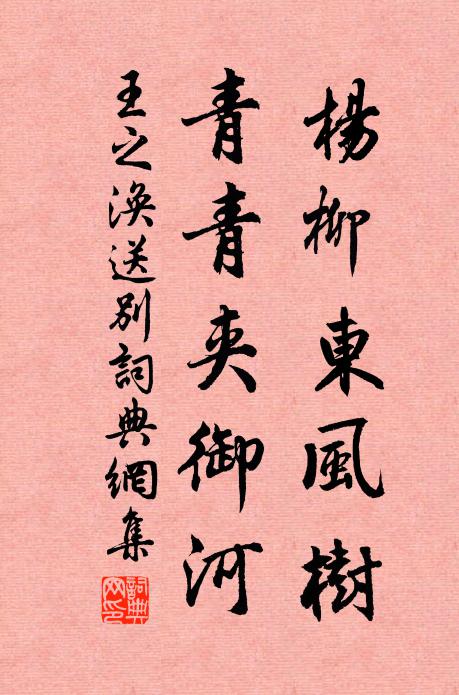 楊柳東風樹
青青夾御河
王之渙送別詞典網集
詞典網印